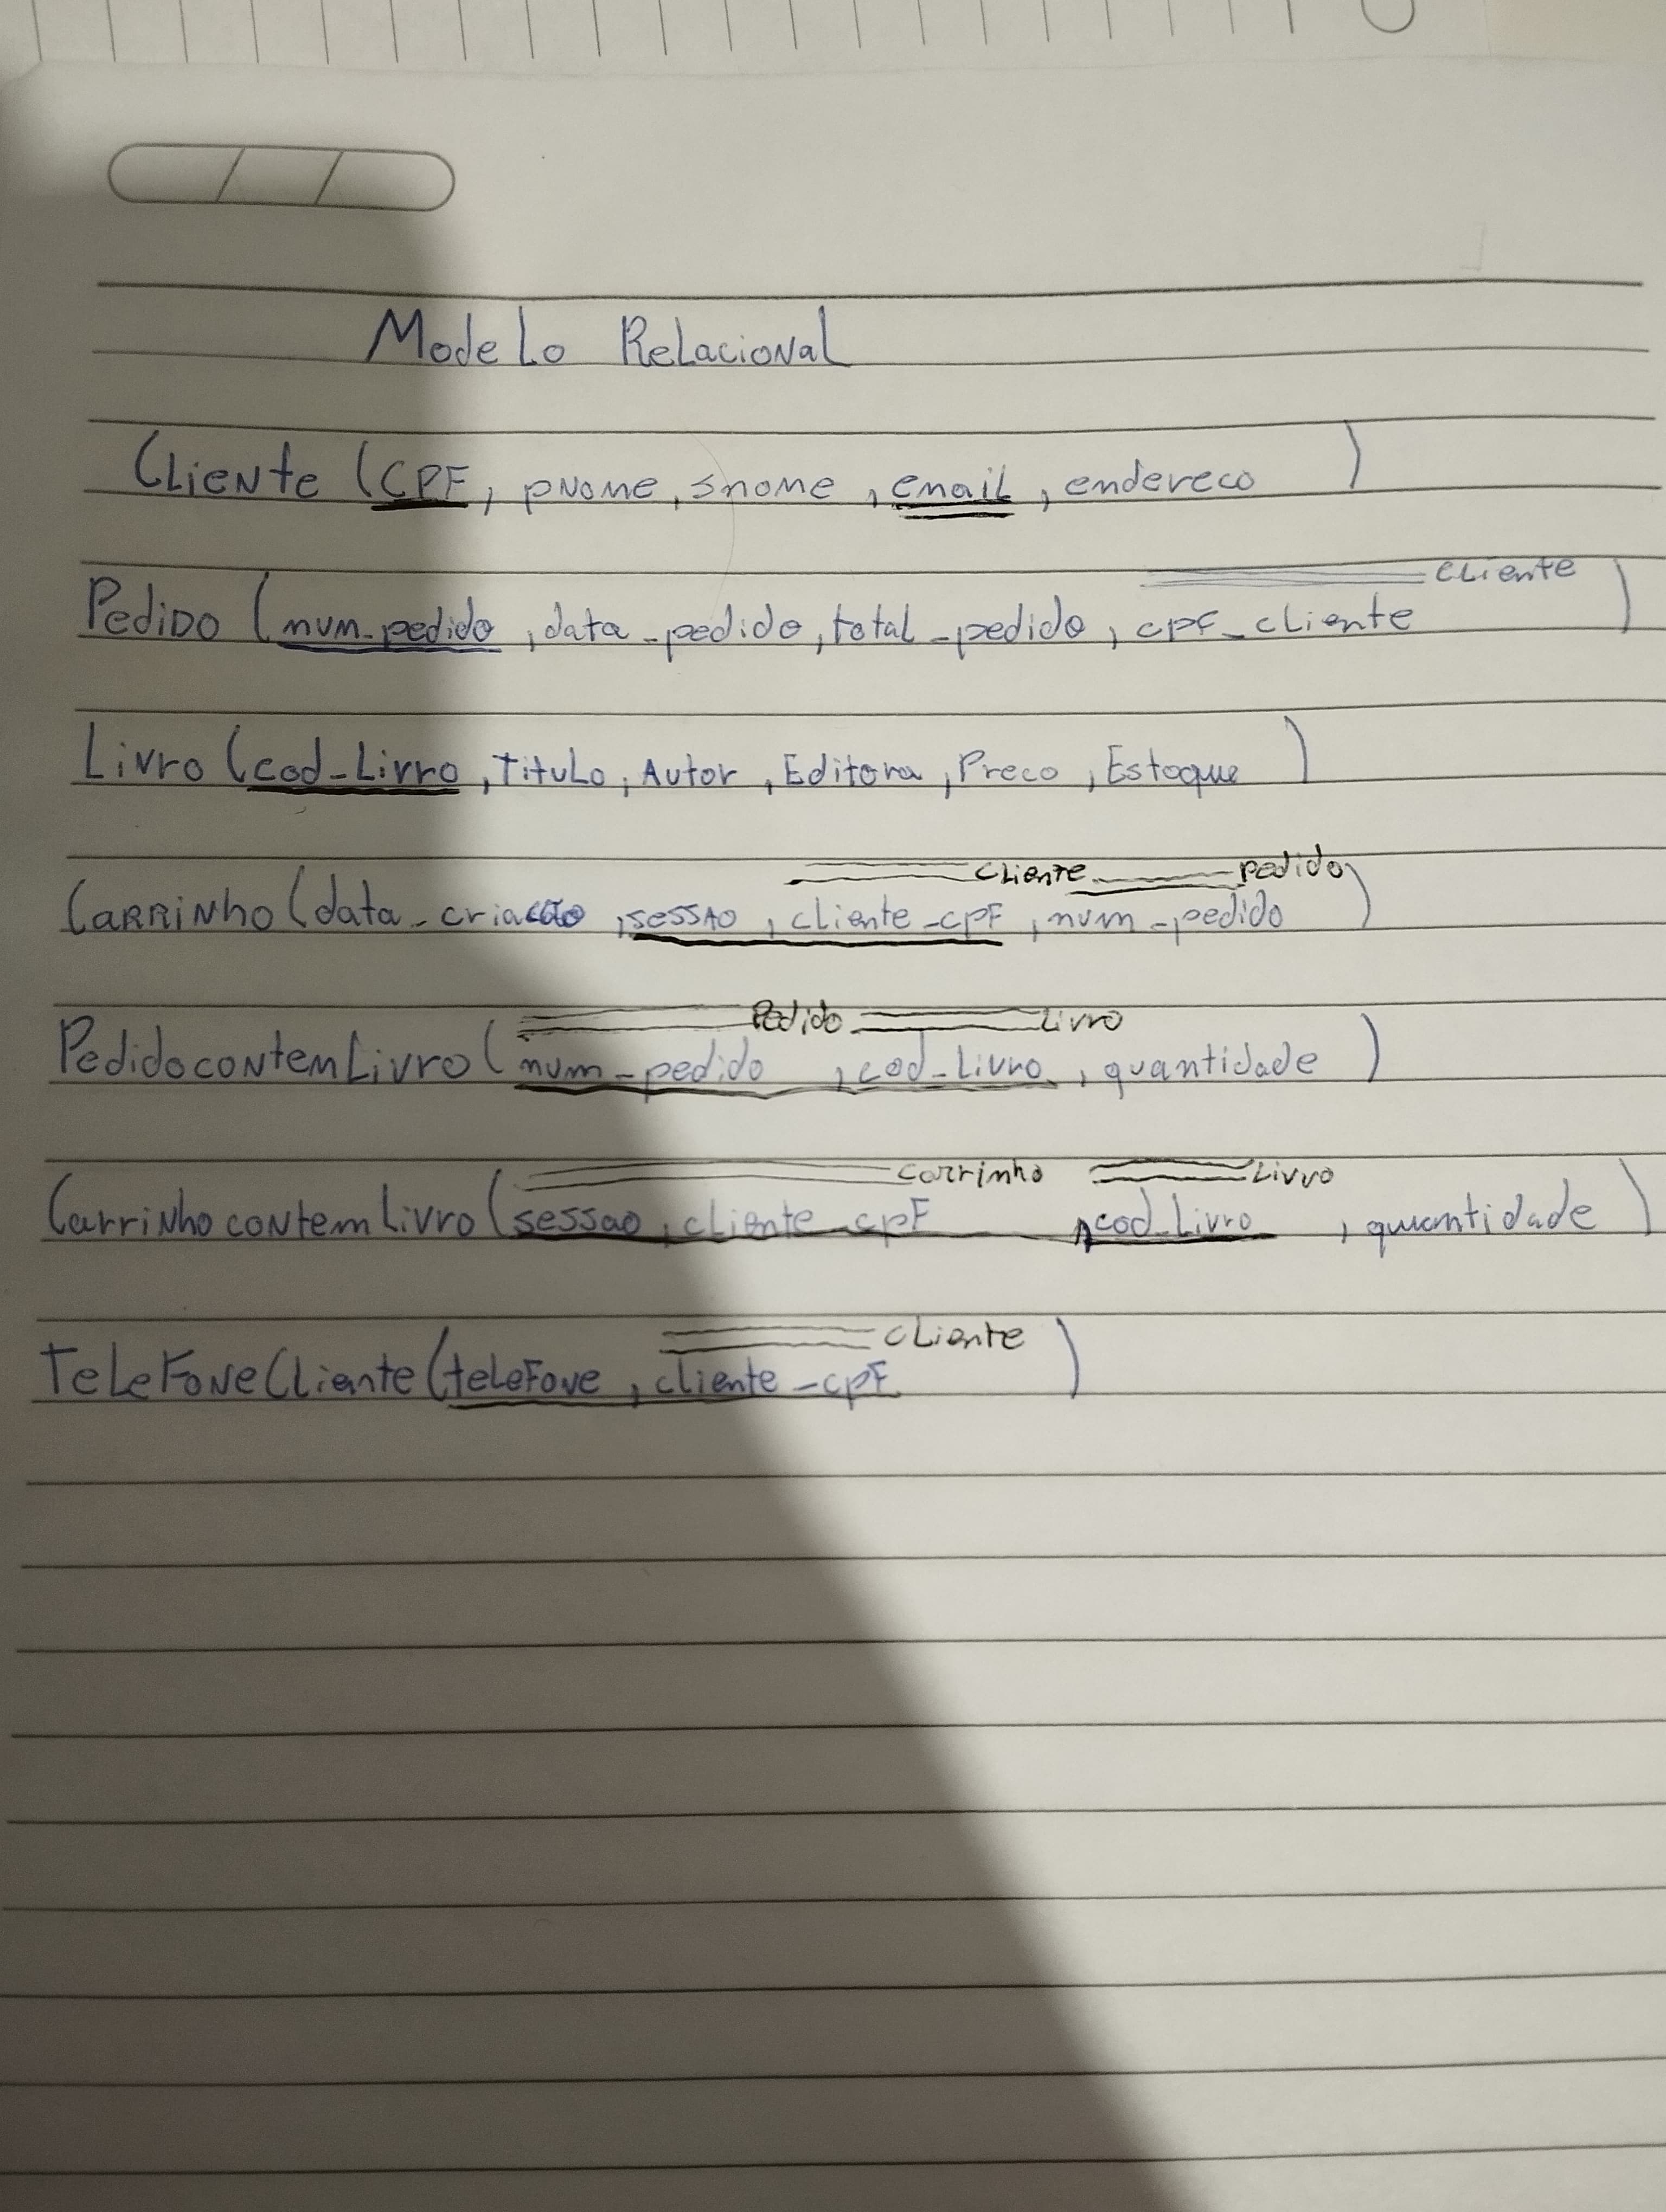 Modelo Relacional
Cliente (CPF, pnome, snome, email, endereco )
cliente
Pedido (num_pedido, data_pedido, total_pedido, cpf_cliente )
Livro (cod_Livro, Titulo, Autor, Editora, Preco, Estoque )
cliente pedido
Carrinho (data_criacão, sessao, cliente_cpf, num_pedido )
Pedido Livro
PedidocontemLivro (num_pedido, cod_Livro, quantidade )
carrinho Livro
CarrinhocontemLivro (sessao, cliente_cpf, cod_Livro, quantidade )
cliente
TelefoneCliente (telefone, cliente_cpf )